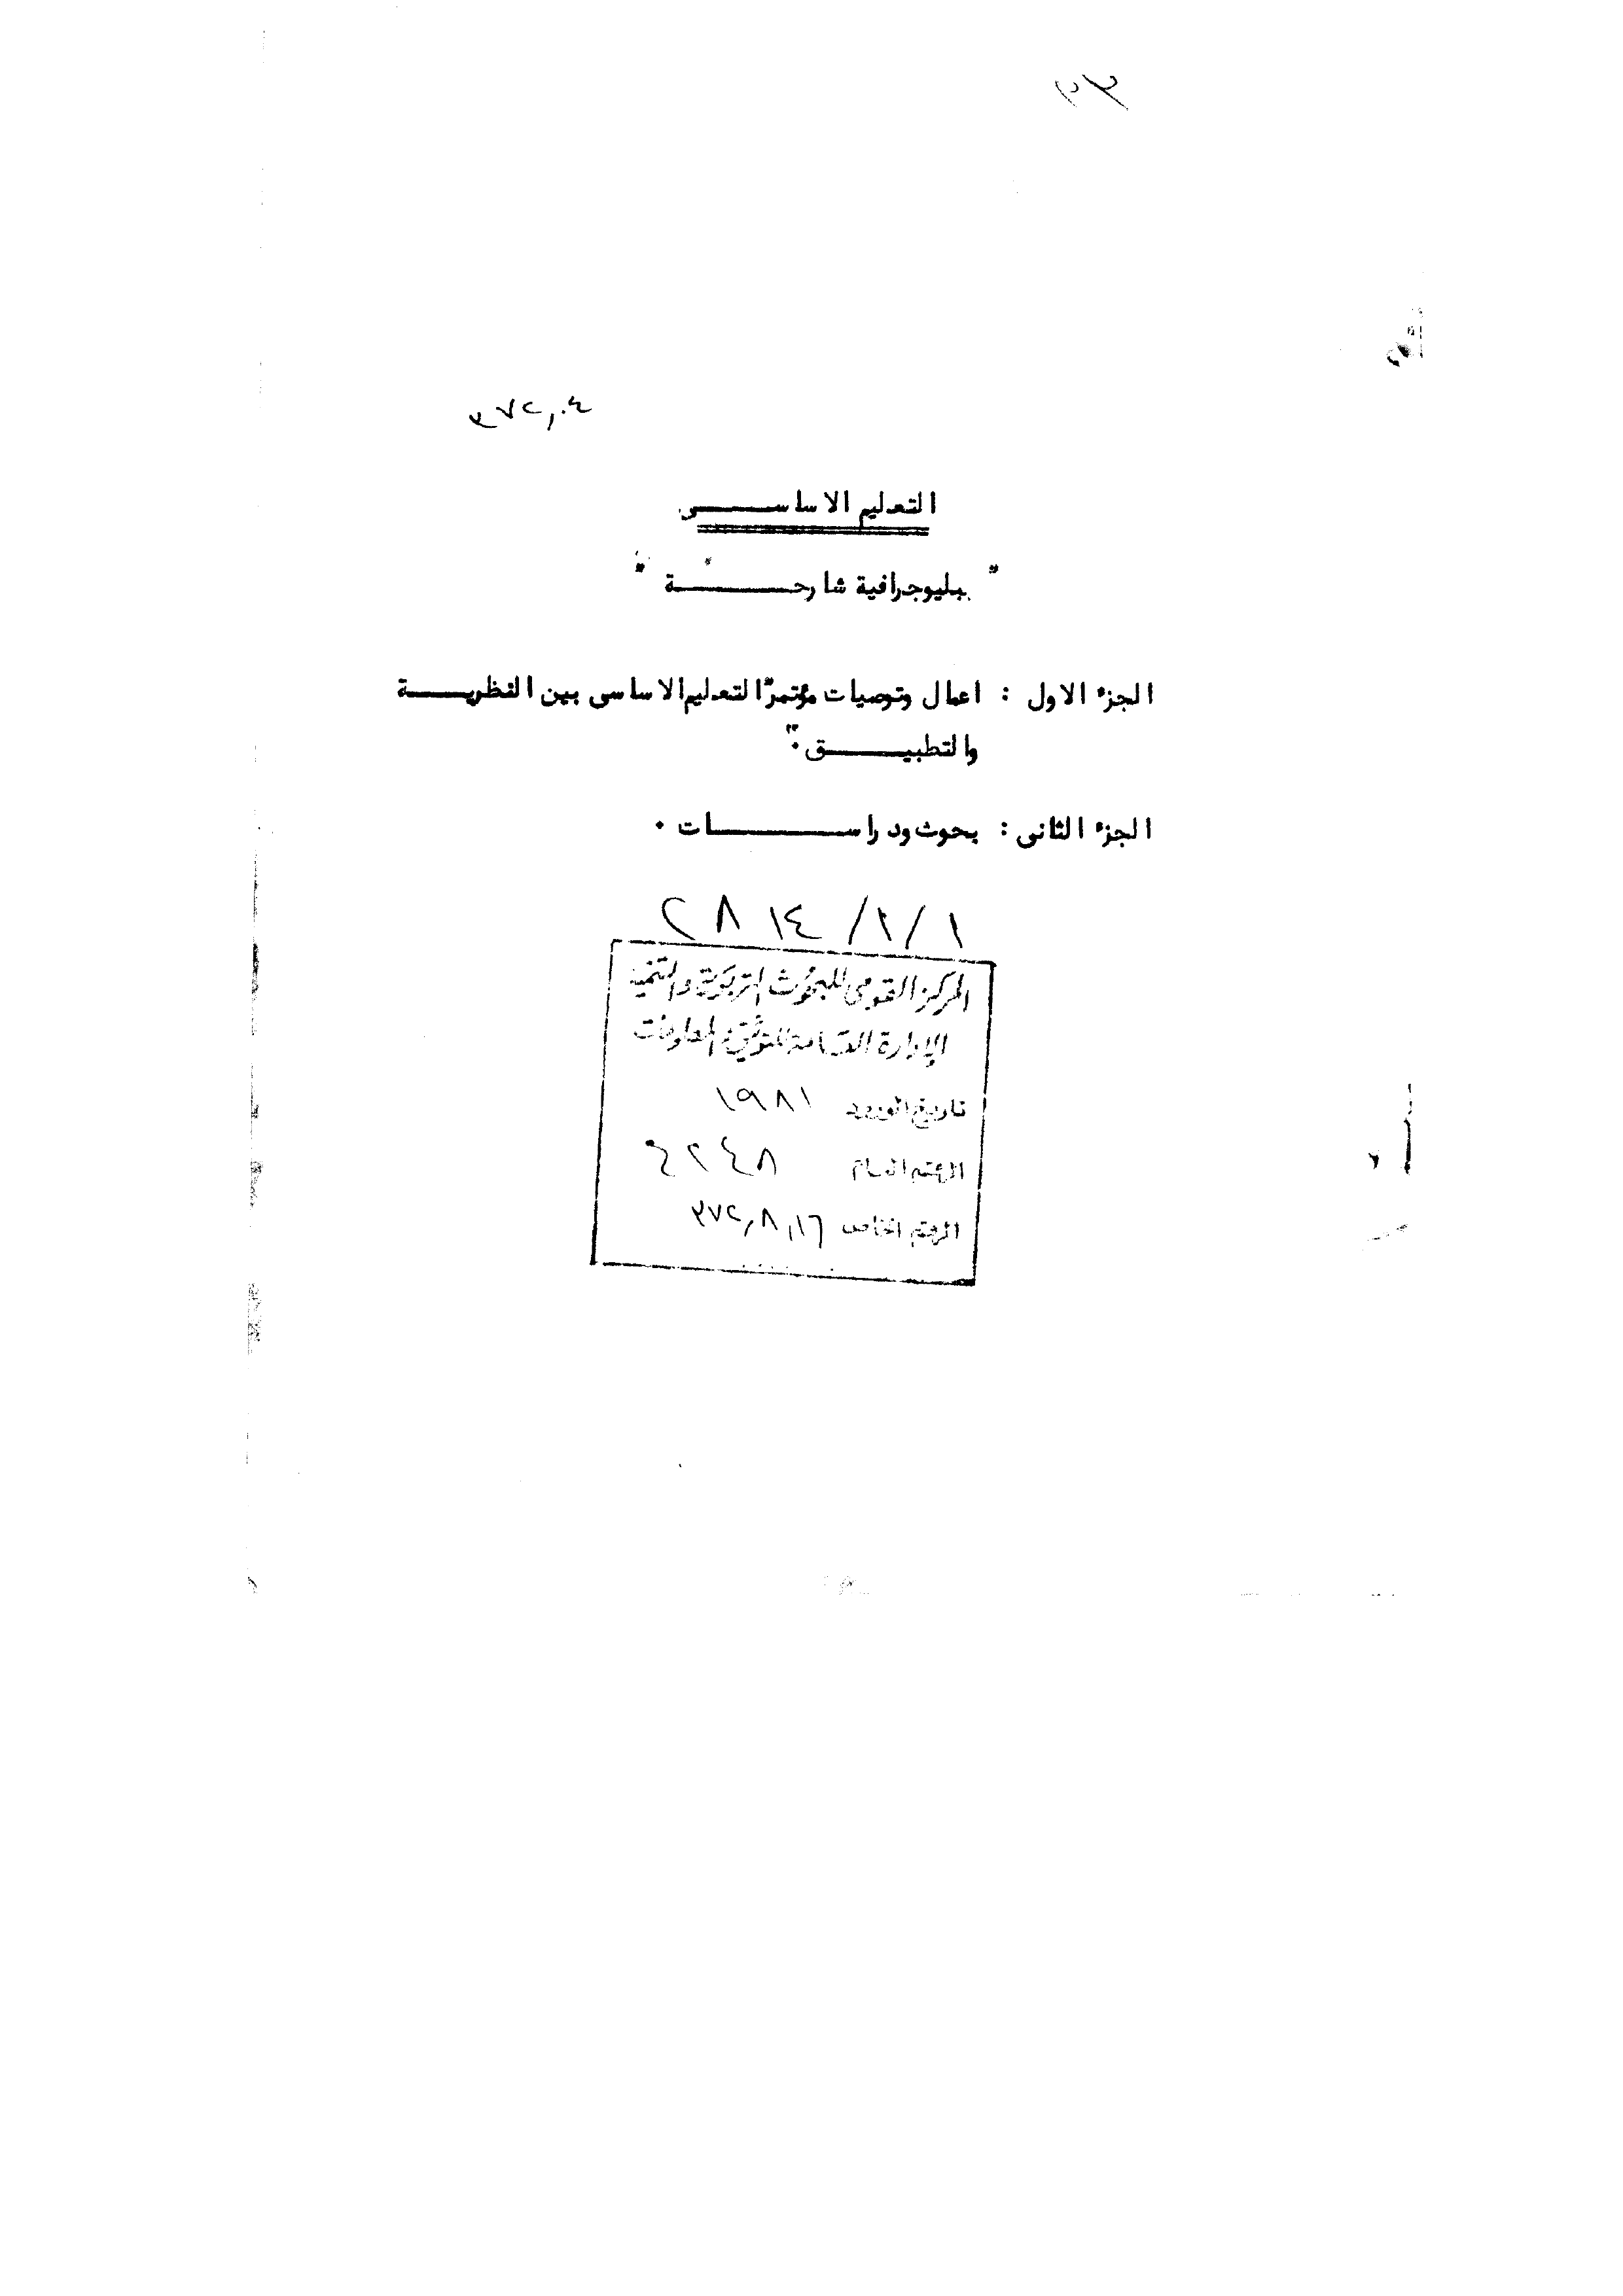 ٣٧٢,٠٤
التعليم الاساسى
" ببليوجرافية شارحة "
الجزء الاول : اعمال وتوصيات مؤتمر"التعليم الاساسى بين النظرية
والتطبيق" .
الجزء الثانى : بحوث ودراسات .
المركز القومى للبحوث التربوية والتنمية
الإدارة العامة للتوثيق والمعلومات
تاريخ الورود ١٩٨١
الرقم العام ٨٤٢٤
الرقم الخاص